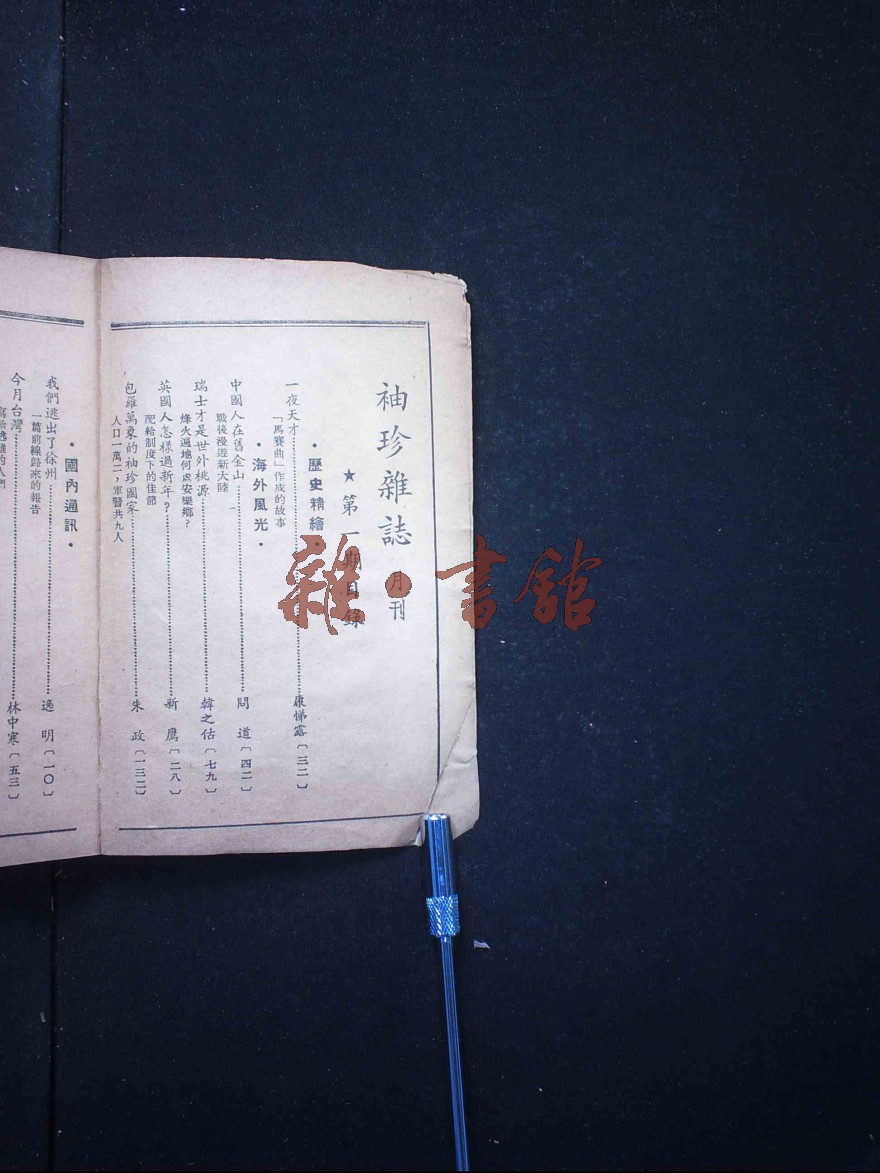 袖珍雜誌 月刊
★ 第一期目錄
•歷史精繪•
一夜天才……康悌露〔三二〕
「馬賽曲」作成的故事
•海外風光•
中國人在舊金山……問道〔四二〕
戰後漫遊新大陸
瑞士才是世外桃源……韓之估〔七九〕
烽火遍地何處安樂鄉？
英國人怎樣過新年？……新鷹〔二八〕
配給制度下的佳節
包羅萬象的袖珍國家……朱政〔一三二〕
人口一萬二，軍警共九人
•國內通訊•
我們逃出了徐州……逸明〔一〇〕
一篇前線歸來的報告
今月台灣……林中寒〔五三〕
雜•書館